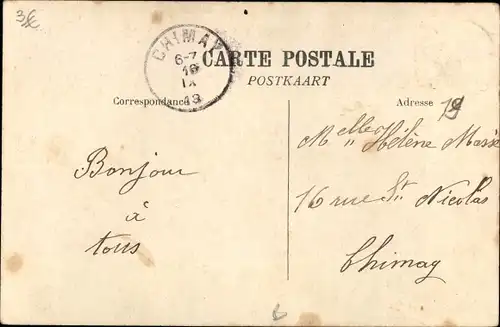 3€
CHIMAY
6-7
16
IX
13
CARTE POSTALE
POSTKAART
Correspondance
Adresse
Bonjour
à
tous
Melle Hélène
16 rue St. Nicolas
Chimay